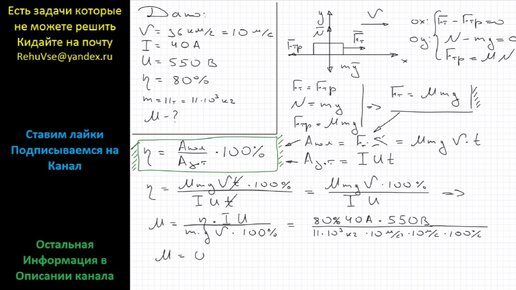 Есть задачи которые
не можете решить
Кидайте на почту
RehuVse@yandex.ru
Ставим лайки
Подписываемся на
Канал
Остальная
Информация в
Описании канала
Дано:
V = 36 км/ч = 10 м/с
I = 40 А
U = 550 В
η = 80%
m = 11т = 11·10³ кг
M - ?
y
N
V
Fтр
Fт
x
mg
ox: Fт - Fтр = 0
oy: N - mg = 0
Fтр = MN
Fт = Fтр
N = mg
Fтр = Mmg
=> Fт = Mmg
η = Aпол / Aзат · 100%
Aпол = Fт · S = Mmg V · t
Aзат = I U t
η = Mmg V t · 100% / I U t = Mmg V · 100% / I U =>
M = η · I U / m · g V · 100% = 80% 40А · 550В / 11·10³ кг · 10 м/с² · 10 м/с · 100%
M = 0